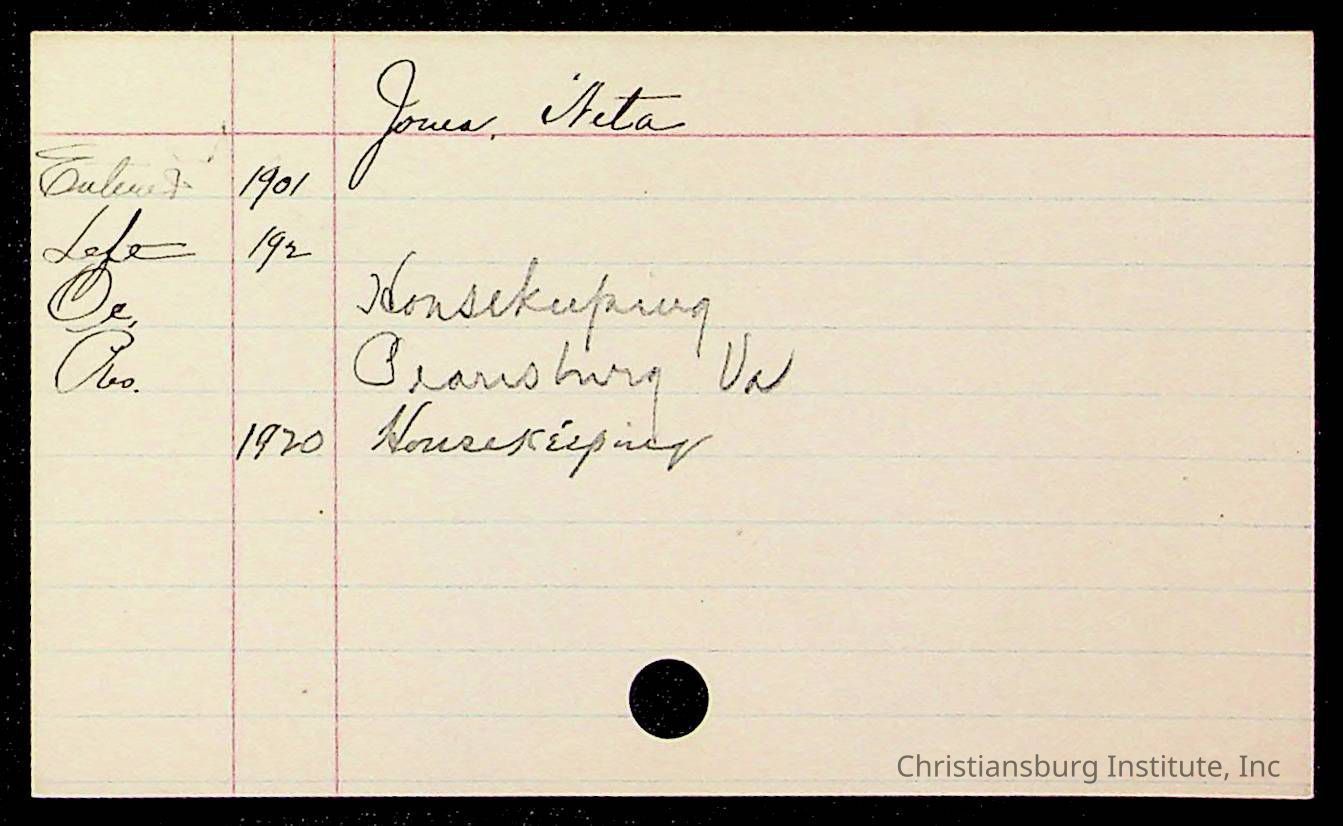 Jones, Neta
Entered 1901
Left 192
Oc. Housekeeping
Res. Pearisburg Va
1920 Housekeeping
Christiansburg Institute, Inc